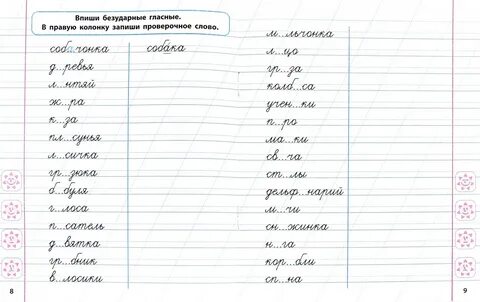 Впиши безударные гласные.
В правую колонку запиши проверочное слово.
собачонка собака
д...ревья
л...нтяй
ж...ра
к...за
пл...сунья
л...сичка
гр...зюка
б...буля
г...лоса
п...сатель
д...вятка
гр...бник
в...лосики
8
м...льчонка
л...цо
гр...за
колб...са
учен...ки
п...ро
ма...ки
св...ча
ст...лы
дельф...нарий
м...чи
сн...жинка
н...га
кор...бли
сп...на
9